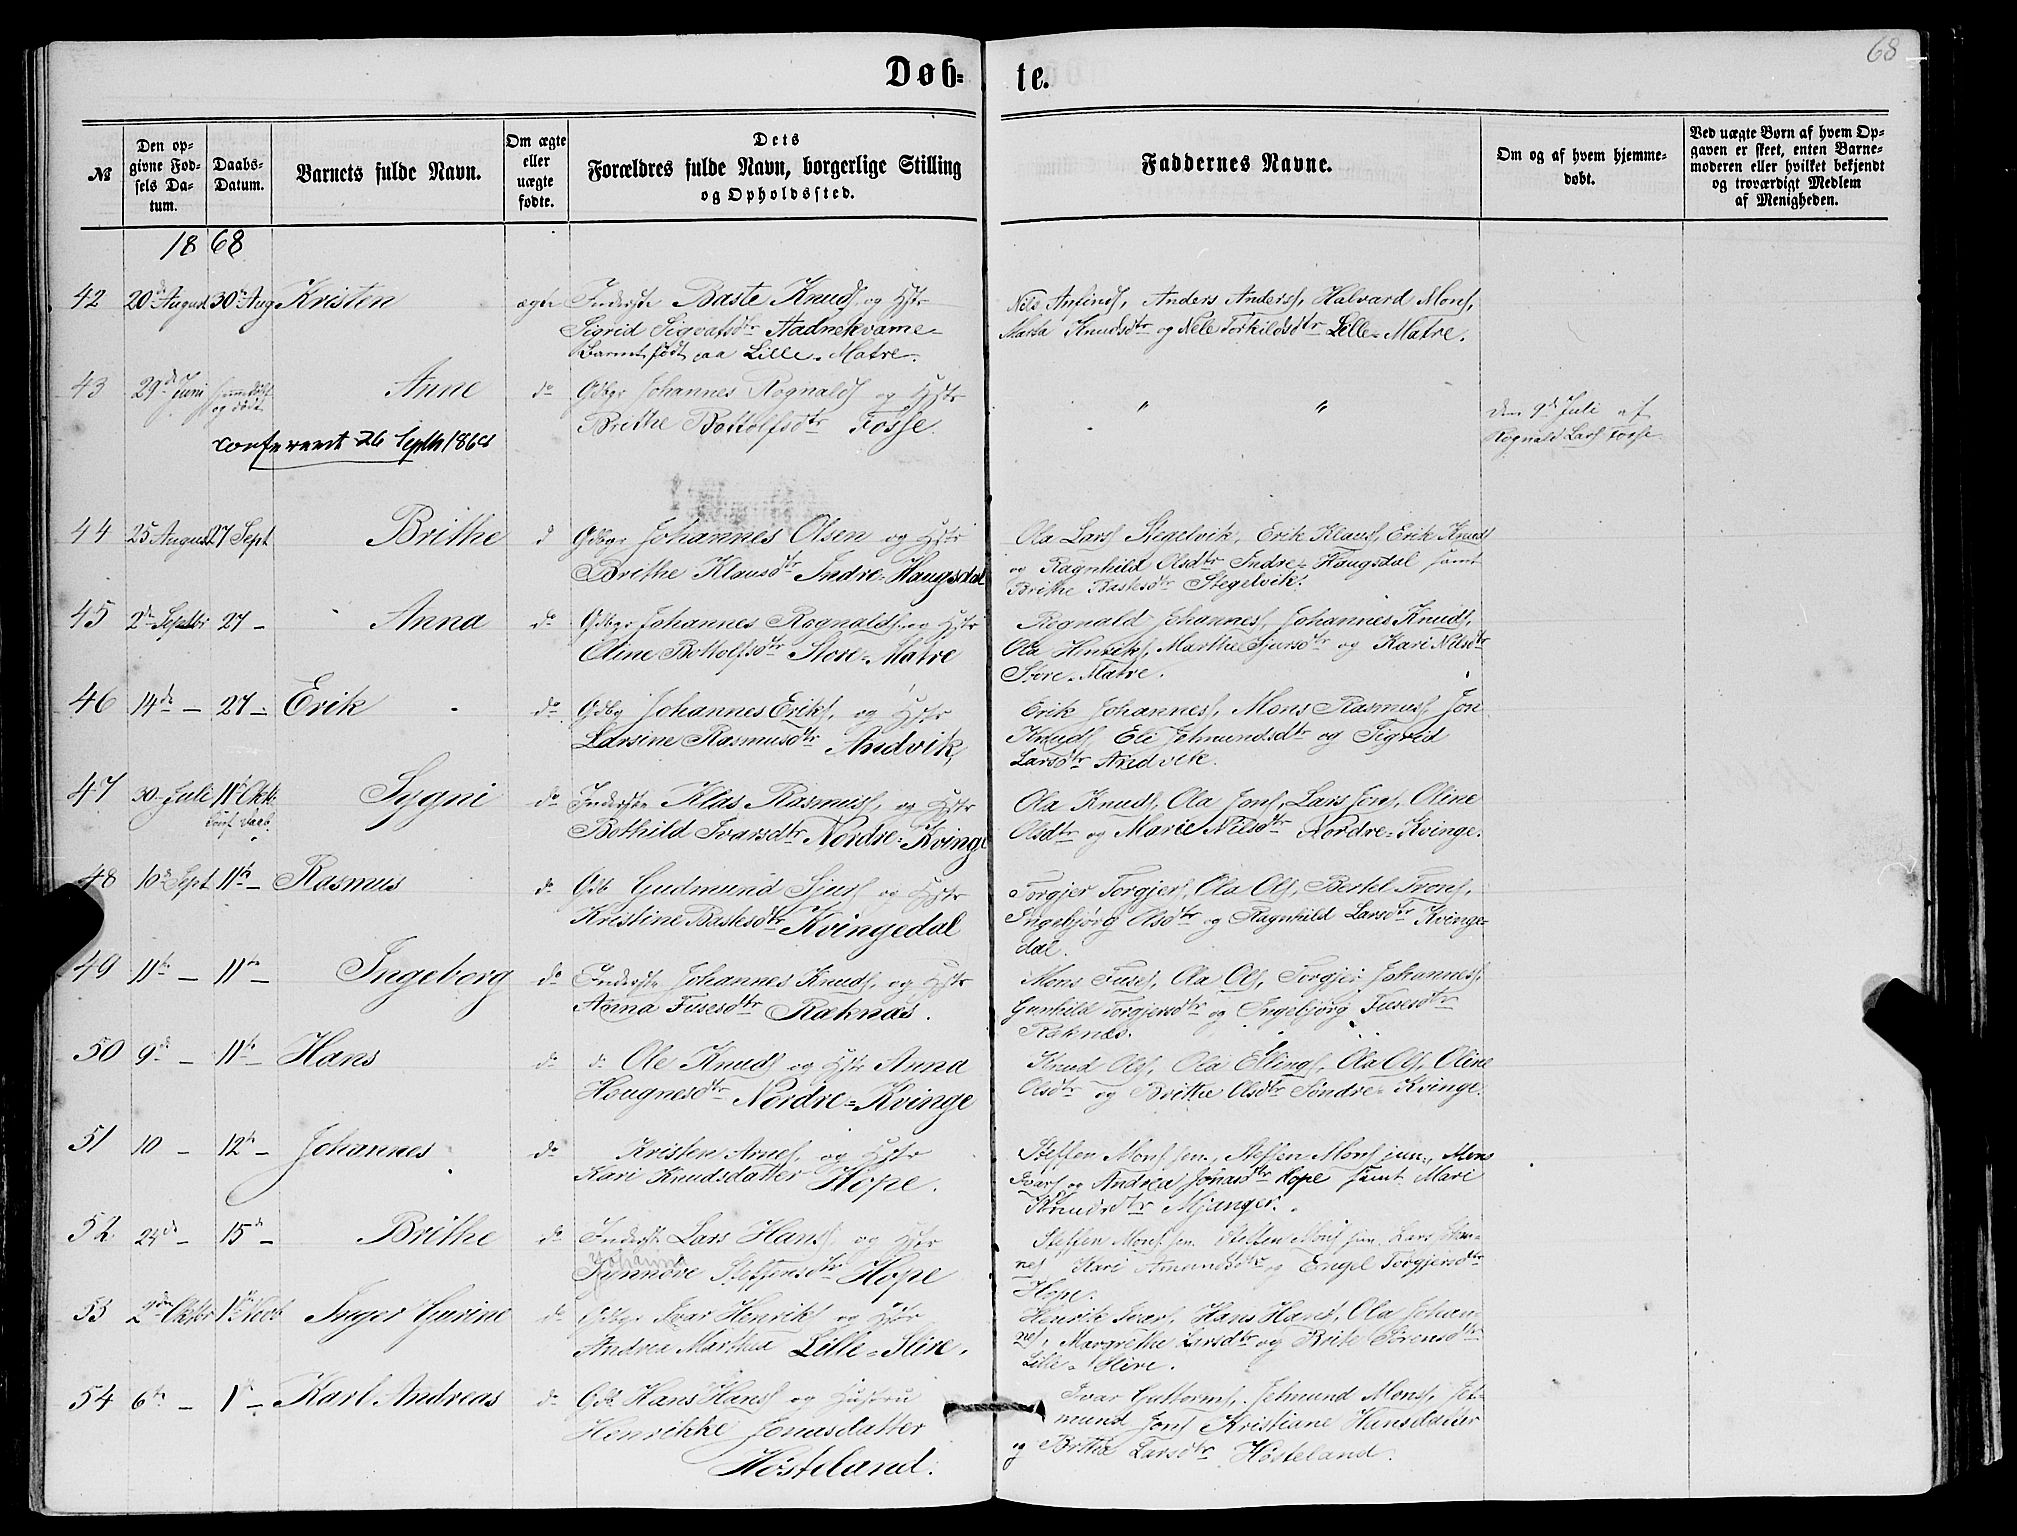 68
Døb-
te.
№
Den op-
givne Fød-
sels Da-
tum.
Daabs-
Datum.
Barnets fulde Navn.
Om ægte
eller
uægte
fødte.
Dets
Forældres fulde Navn, borgerlige Stilling
og Opholdssted.
Faddernes Navne.
Om og af hvem hjemme-
døbt.
Ved uægte Børn af hvem Op-
gaven er skeet, enten Barne-
moderen eller hvilket bekjendt
og troværdigt Medlem
af Menigheden.
1868
42 20de August 30te Aug Kristen ægte Inderste Baste Knuds. og Hstr
Sigrid Sigvatsdtr Aadnekvame
Barnet født paa Lille-Matre.
Nils Anfinds, Anders Anders, Halvard Mons,
Marta Knudsdtr og Nele Torkildsdtr Lille-Matre.
43 29de Juni hjemmedøbt
og død. Anne do Gdbgr Johannes Rognalds og Hstr
Brithe Bottolfsdtr Fosse.
" "
den 9de Juli af
Rognald Lars Fosse
Confereret 26 Septbr 1868
44 25 August 27 Sept Brithe d Gdbgr Johannes Olsen og Hstr
Brithe Klausdtr Indre-Haugsdal
Ola Lars Stegelvik, Erik Klaus, Erik Knuds
og Ragnhild Olsdtr Indre-Haugsdal samt
Brithe Bastesdtr Stegelvik.
45 2de Septbr 27 - Anna do Gdbgr Johannes Rognalds og Hstr
Oline Bottolfsdtr Store-Matre
Rognald Johannes, Johannes Knuds,
Ola Henriks, Marthe Sjursdtr og Kari Nilsdtr
Store-Matre.
46 14de - 27 - Erik do Gdbg Johannes Eriks, og Hstr
Larsine Rasmusdtr Andvik,
Erik Johannes, Mons Rasmus, Jon
Knuds Eli Jetmundsdtr og Sigrid
Larsdtr Andvik.
47 30 Juli 11te Oktb Sygni do Inderste Klas Rasmus, og Hstr
Bothild Ivarsdtr Nordre-Kvinge
Ola Knuds, Ola Jons, Lars Jons, Oline
Olsdtr og Marie Nilsdtr Nordre-Kvinge.
48 10de Sept 11te - Rasmus do Gdb Gudmund Sjurs og Hstr
Kristine Bastesdtr Kvingedal
Torgjer Torgjers, Ola Ols, Bertel Trons,
Ingebjørg Olsdtr og Ragnhild Larsdtr Kvinge-
dal.
49 11te - 11te - Ingeborg do Inderste Johannes Knuds, og Hstr
Anna Fusesdtr Raknæs.
Mons Fuses, Ola Ols, Torgjer Johannes,
Gunhild Torgjersdtr og Ingebjørg Fusesdtr
Raknæs.
50 9de - 11te - Hans do do Ole Knuds og Hstr Anna
Hougnesdtr Nordre-Kvinge
Knud Ols, Ola Ellings, Ola Ols, Oline
Olsdtr og Brithe Olsdtr Søndre-Kvinge.
51 10 - 12te - Johannes do Kristen Arnes, og Hstr
Kari Knudsdatter Hope.
Steffen Mons sen., Steffen Mons jun., Mons
Ivars og Andrea Jonasdtr Hope samt Mari
Knudsdtr Mjanger.
52. 24de - 15de - Brithe do Inderste Lars Hans, og Hstr
Johanna
Synnøve Steffensdtr Hope
Steffen Mons sen. Steffen Mons jun. Lars Johan-
nes Kari Amundsdtr og Engel Torgjersdtr
Hope.
53 2den Oktbr 1ste Novb Inger Gurine do Gdbgr Ivar Henriks og Hstr
Andrea Marthea Lille-Slire.
Henrik Ivars, Hans Hans, Ola Johan-
nes, Margrethe Larsdtr og Brite Sørensdtr
Lille-Slire.
54 6te - 1ste - Karl Andreas do Gdb. Hans Hans og Hustru
Henrikke Jonasdatter
Høsteland.
Ivar Guttorms, Jetmund Mons, Jet-
mund Jons Kristiane Hansdatter
og Brithe Larsdtr Høsteland.